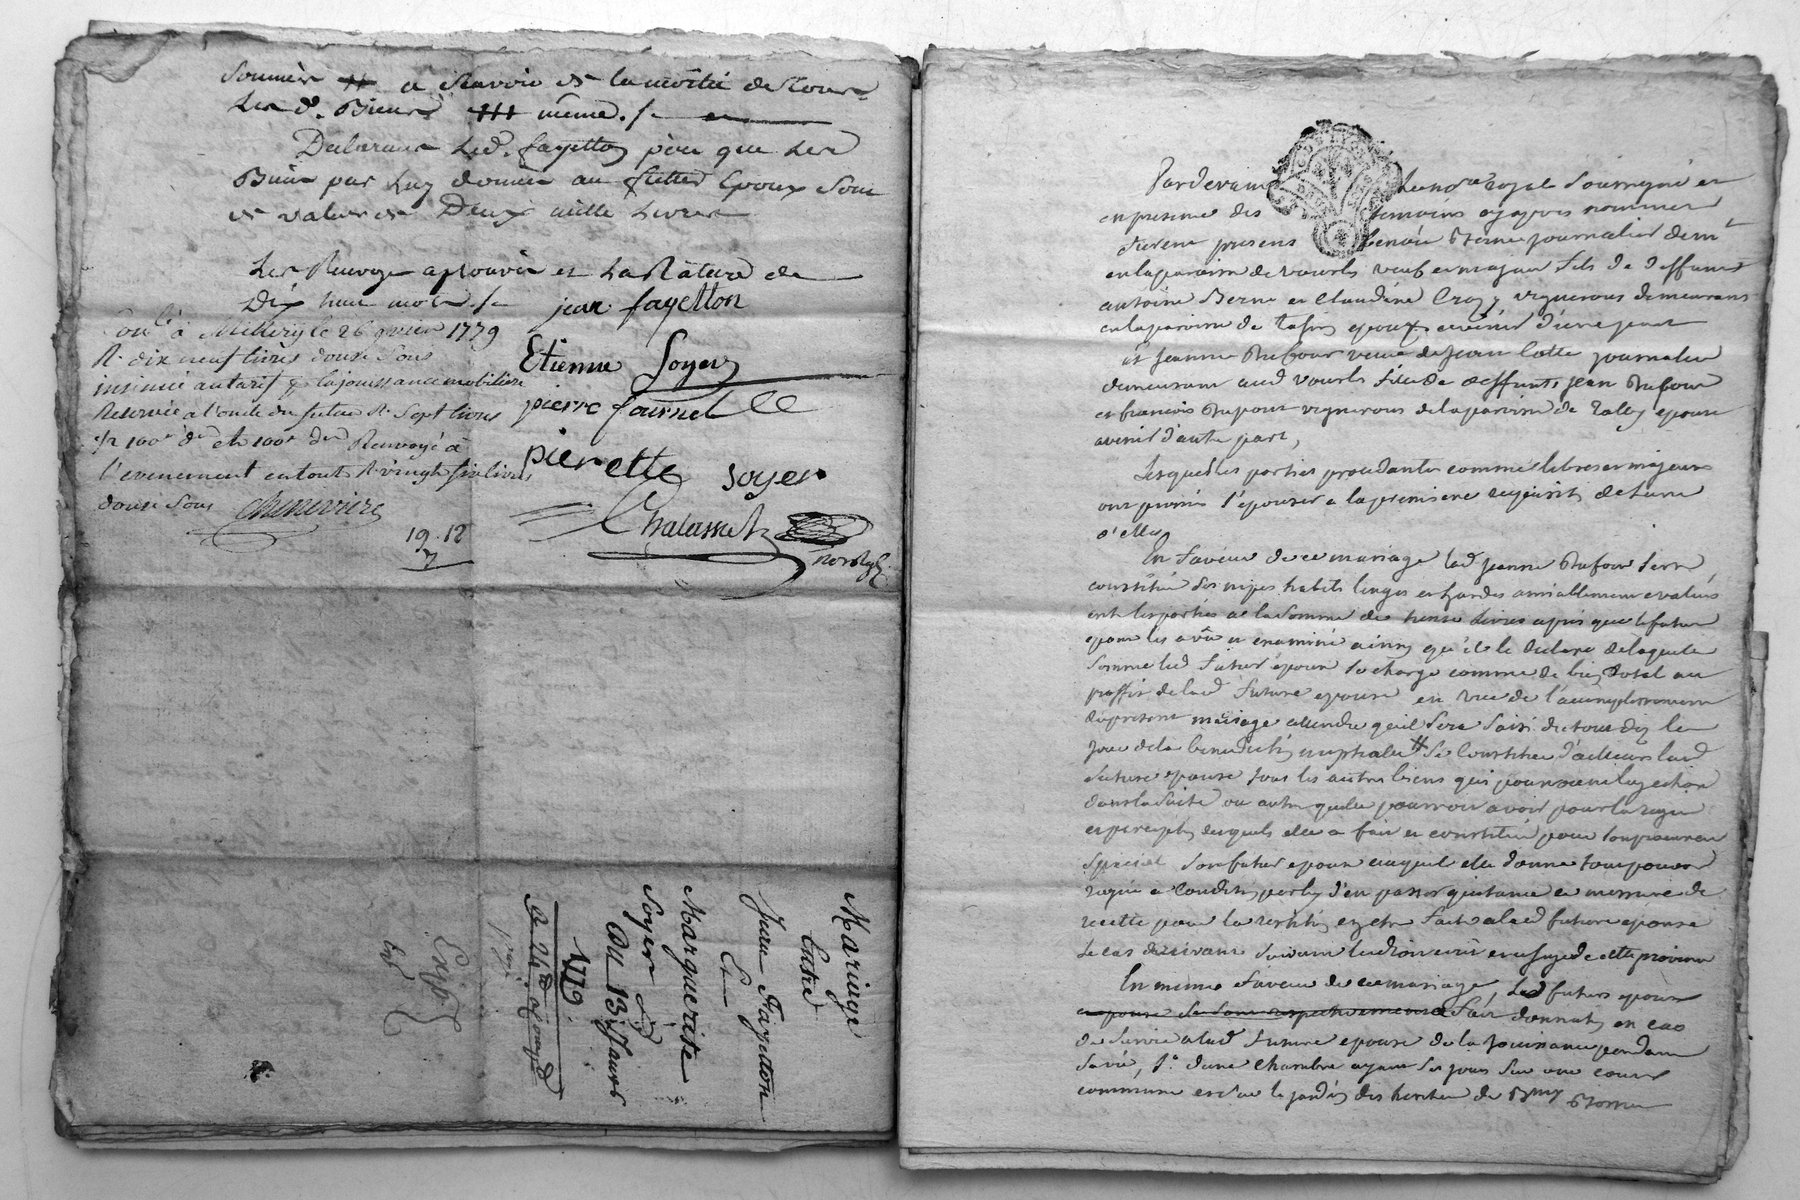 a Scavoir de la moitié de tous
les d. Biens même ./.
Declarant led. fayetton père que les
Biens par luy donnés au futur Epoux Sont
de valeur de Deux mille Livres
Les Renvoys aprouvés et La Rature de
Dix huit mots ./.
jean fayetton
Etienne Soyer
pierre fournel
pierette soyer
Chalassut
Con.lé à Millery le 26 janvier 1779
R. dix neuf livres douze Sous
au tarif p. la jouissance mobiliere
Reservée a l'oncle du futur R. Sept livres
Renvoyé à
l'evenement en tout R. vingt six livres
douze Sous Chenevière
19.12
7
Mariage
Entre
Jean Fayetton
Et
Marguerite
Soyer
Du 13 Janv.
1779.
Pardevant Le no.re royal Soussigné et
en presence des temoins cy apres nommés
furent presens Benoit Berne journalier dem.t
en la paroisse de vourles veuf et majeur fils de deffunts
antoine Berne et Claudine Crozy vignerons demeurans
en la paroisse de epoux avenir d'une part
et Jeanne Dufour veuve de Jean Cotte journalier
demeurant aud vourles fille de deffunts jean Dufour
et francois Dupont vignerons de la paroisse de epouse
avenir d'autre part,
Lesquelles parties procedantes comme libres et majeures
ont promis s'epouser a la premiere requisit. de l'une
d'elles
En faveur de ce mariage lad Jeanne Dufour s'est
constitué ses nipes habits linges et hardes amiablement evalués
ent. les parties a la somme de trente Livres apres que le futur
epoux les a vû et examiné ainsy qu'il le declare de laquelle
somme led futur epoux se charge comme de bien dotal au
proffit de lad future epouse en vue de l'accomplissement
du present mariage attendu qu'il sera saisi du tout des le
jour de la benediction nuptiale Se Constitue d'ailleurs lad
future epouse tous les autres biens qui pourront luy echoir
dans la suite ou autres qu'elle pourroit avoir pour la
desquels elle a fait et constitué pour son procureur
special son futur epoux auquel elle donne tout pouvoir
requis a Condit. par luy d'en passer quittance a mesure de
recette pour la restit. en etre faite a lad future epouse
le cas arrivant suivant le droit ecrit en usage de cette province
En meme faveur de ce mariage, Led futur epoux
fait donnat. en cas
de survie a lad future epouse de la jouissance pendant
sa vie, 1° d'une Chambre ayant ses jours sur une cour
commune et sur le jardin des heritiers de